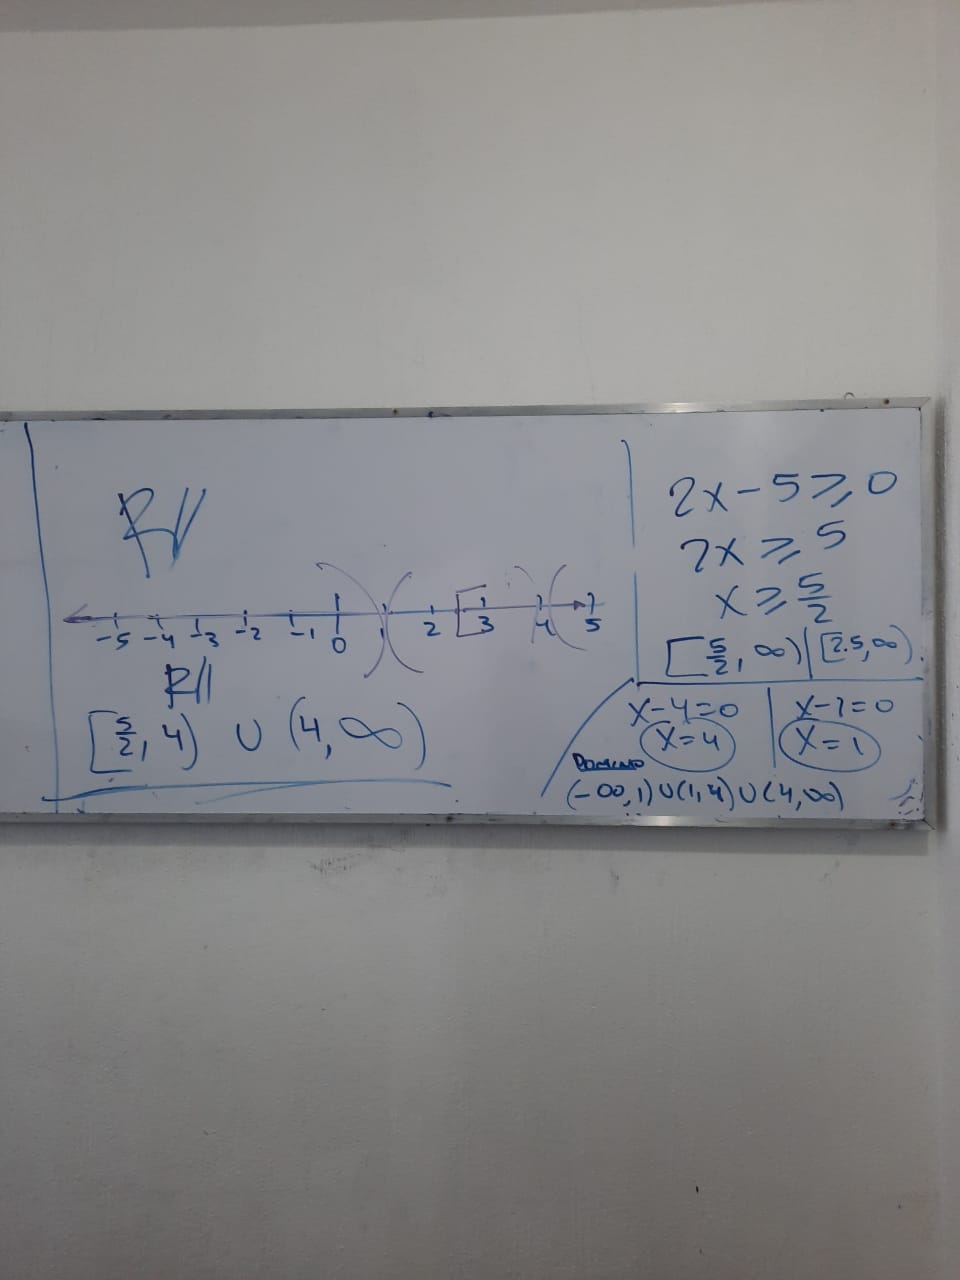 R//
-5 -4 -3 -2 -1 0 1 2 3 4 5
R//
[5/2, 4) ∪ (4, ∞)
2x - 5 ≥ 0
2x ≥ 5
x ≥ 5/2
[5/2, ∞) | [2.5, ∞)
x-4=0 | x-1=0
x=4 | x=1
Dominio
(-∞, 1) ∪ (1, 4) ∪ (4, ∞)